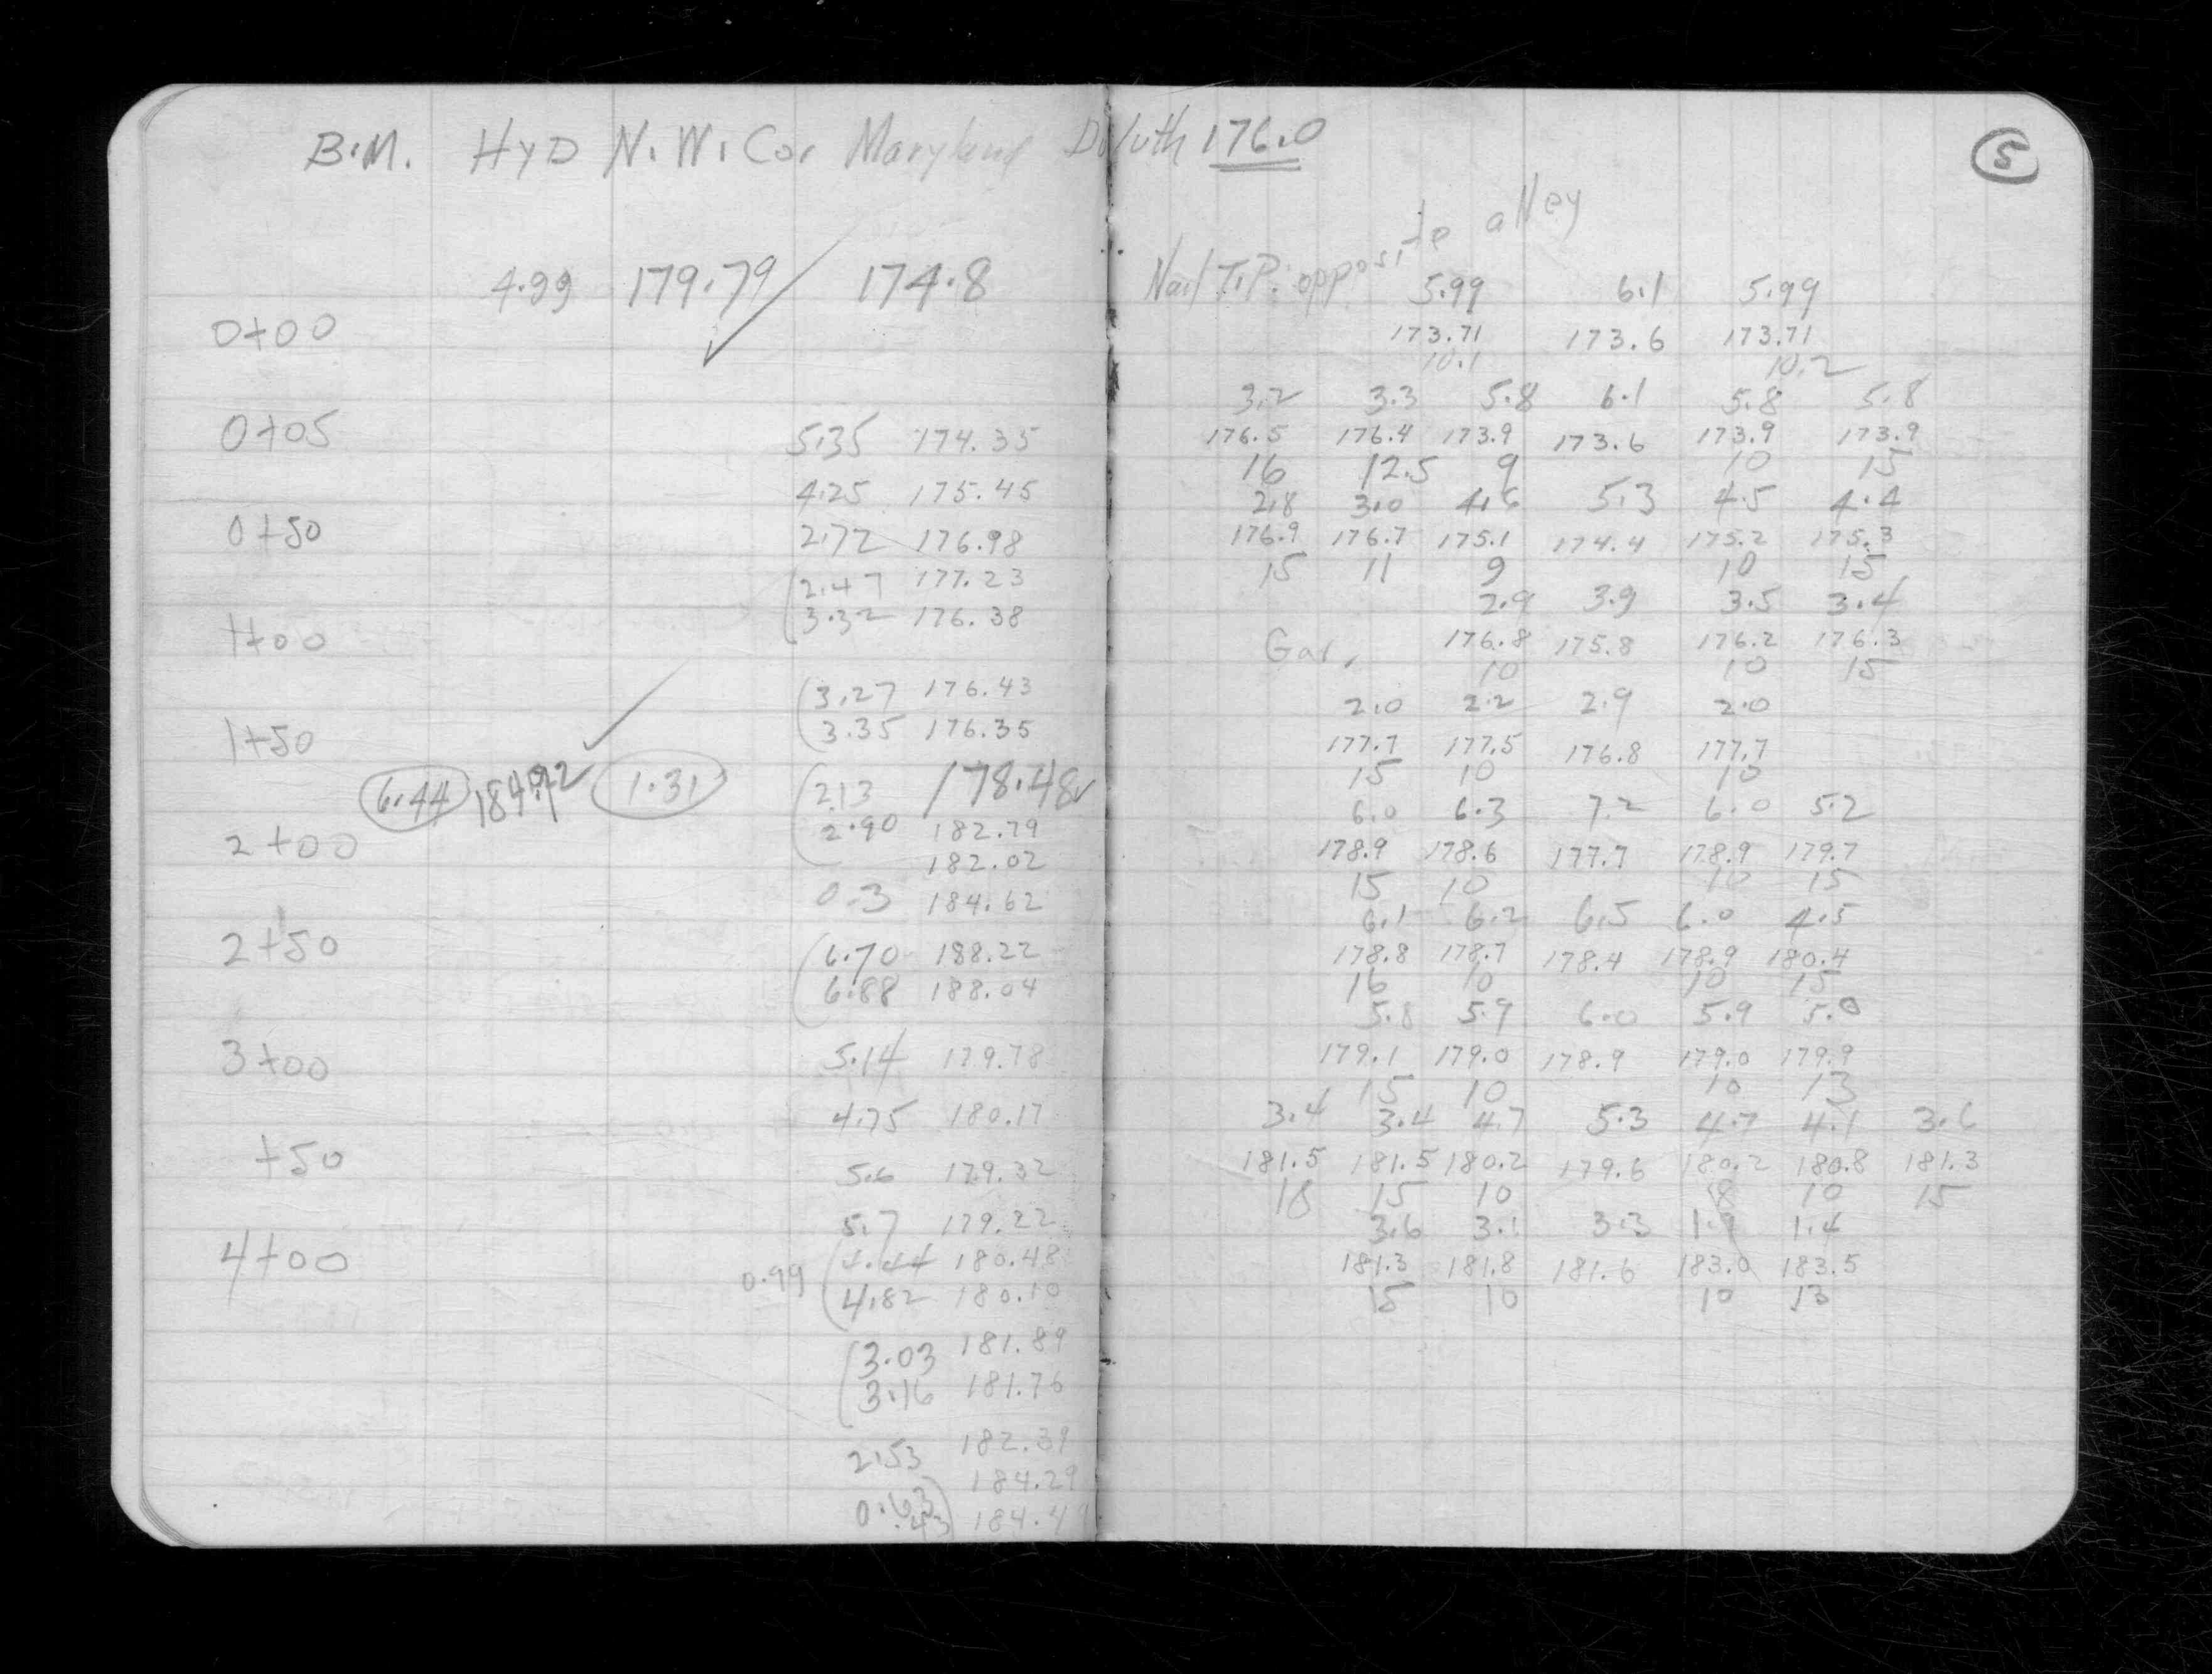 B.M. HyD N.W. Cor Maryland Duluth 176.0
5
Nail T.P. opposite alley
4.99 179.79 174.8 5.99 6.1 5.99
0+00 173.71 173.6 173.71
10.1 10.2
3.2 3.3 5.8 6.1 5.8 5.8
0+05 5.35 174.35 176.5 176.4 173.9 173.6 173.9 173.9
16 12.5 9 10 15
4.25 175.45 2.8 3.0 4.6 5.3 4.5 4.4
0+50 2.72 176.98 176.9 176.7 175.1 174.4 175.2 175.3
(2.47 177.23 15 11 9 10 15
3.32 176.38 2.9 3.9 3.5 3.4
1+00 Gar. 176.8 175.8 176.2 176.3
10 10 15
(3.27 176.43 2.0 2.2 2.9 2.0
1+50 3.35 176.35 177.7 177.5 176.8 177.7
15 10 10
6.44 184.92 1.31 (2.13 178.48 6.0 6.3 7.2 6.0 5.2
2.90 182.79
2+00 182.02 178.9 178.6 177.7 178.9 179.7
15 10 10 15
0.3 184.62 6.1 6.2 6.5 6.0 4.5
2+50 (6.70 188.22 178.8 178.7 178.4 178.9 180.4
6.88 188.04 16 10 10 15
5.8 5.9 6.0 5.9 5.0
3+00 5.14 179.78 179.1 179.0 178.9 179.0 179.9
15 10 10 13
4.75 180.17 3.4 3.4 4.7 5.3 4.7 4.1 3.6
+50 5.6 179.32 181.5 181.5 180.2 179.6 180.2 180.8 181.3
18 15 10 8 10 15
5.7 179.22 3.6 3.1 3.3 1.9 1.4
4+00 0.99 (4.44 180.48 181.3 181.8 181.6 183.0 183.5
4.82 180.10 15 10 10 13
(3.03 181.89
3.16 181.76
2.53 182.39
184.29
0.63)
.43 184.49